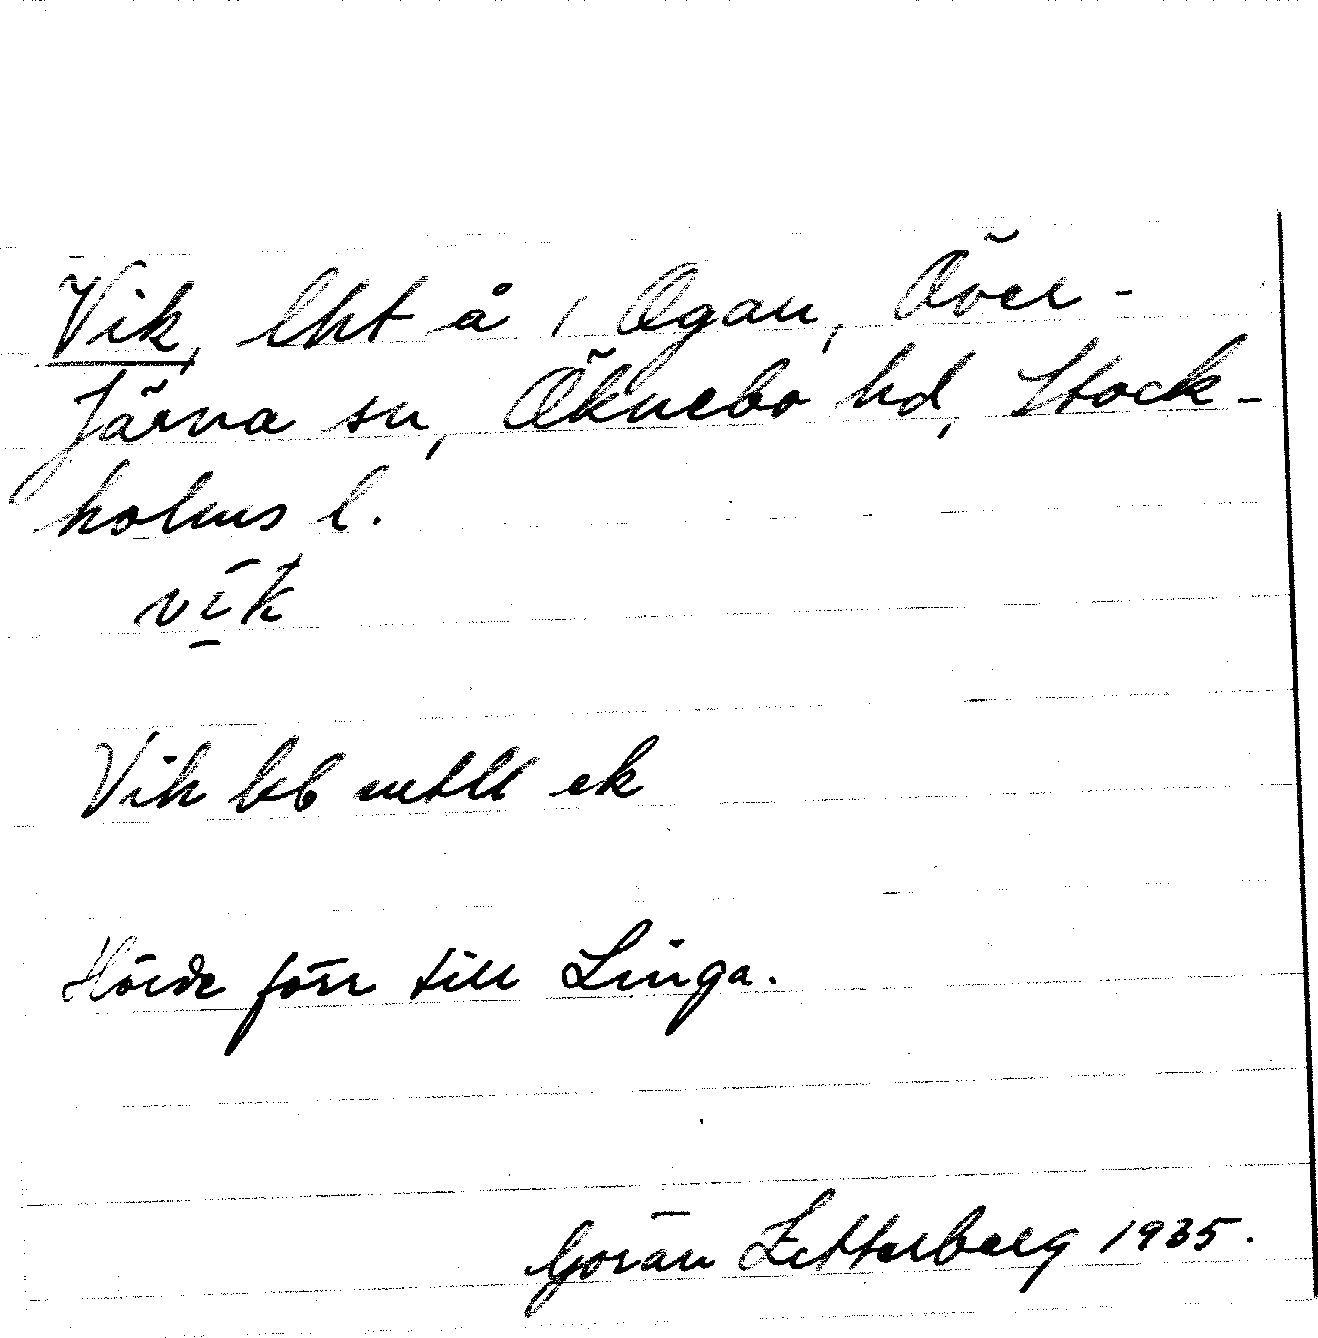 Vik, lht å / Ogan, Över-
Järva sn, Öknebo hd, Stock-
holms l.
vík
Vik kb ek
Hörde förr till Linga.
Göran Zetterberg 1935.